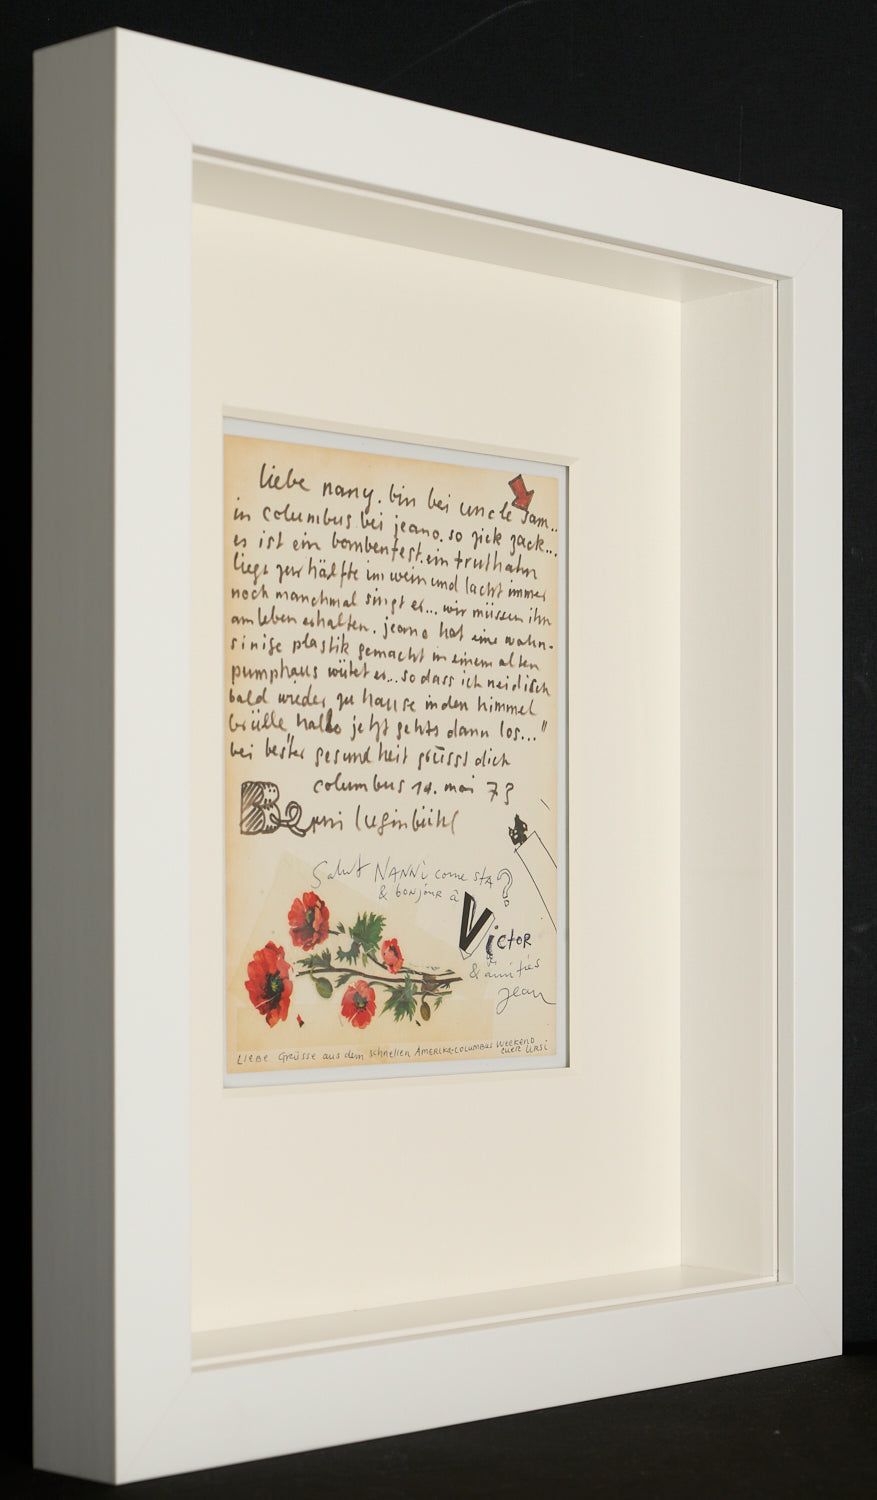 liebe nany. bin bei uncle sam..
in columbus bei jeano. so zick zack...
es ist ein bombenfest. ein truthahn
liegt zur hälfte im wein und lacht immer
noch manchmal singt er... wir müssen ihn
am leben erhalten. jeano hat eine wahn-
sinige plastik gemacht in einem alten
pumphaus wütet er... so dass ich neidisch
bald wieder zu hause in den himmel
brülle, hallo jetzt gehts dann los..."
bei bester gesundheit grüsst dich
columbus 14. mai 79
Berni luginbühl
Salut NANNi come stA ?
& bonjour à
Victor
& amitiés
Jean
LIEBE GRÜSSE aus dem schnellen AMERIKA-COLUMBUS WEEKEND
EUER URSI